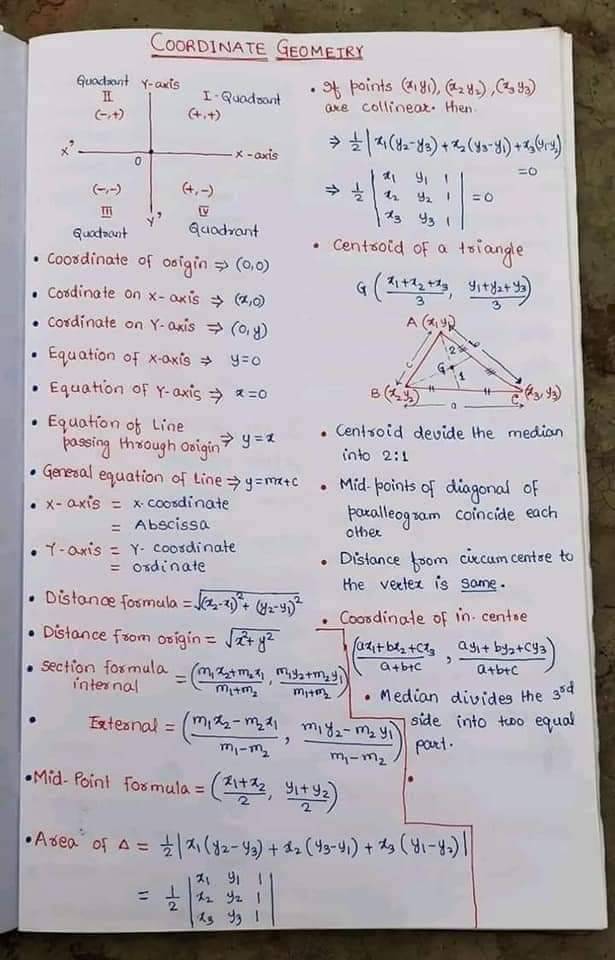 COORDINATE GEOMETRY
Quadrant
II
(-,+)
Y-axis
I-Quadrant
(+,+)
X'
O
X-axis
(-,-)
III
Quadrant
Y'
(+,-)
IV
Quadrant
• Coordinate of origin ⇒ (0,0)
• Cordinate on x-axis ⇒ (x,0)
• Cordinate on Y-axis ⇒ (0,y)
• Equation of x-axis ⇒ y=0
• Equation of Y-axis ⇒ x=0
• Equation of Line
passing through origin ⇒ y=x
• General equation of Line ⇒ y=mx+c
• x-axis = x-coordinate
= Abscissa
• Y-axis = Y-coordinate
= ordinate
• Distance formula = √(x₂-x₁)² + (y₂-y₁)²
• Distance from origin = √x²+y²
• Section formula
internal = (m₁x₂+m₂x₁/m₁+m₂, m₁y₂+m₂y₁/m₁+m₂)
• External = (m₁x₂-m₂x₁/m₁-m₂, m₁y₂-m₂y₁/m₁-m₂)
• Mid-Point formula = (x₁+x₂/2, y₁+y₂/2)
• Area of Δ = 1/2 |x₁(y₂-y₃) + x₂(y₃-y₁) + x₃(y₁-y₂)|
= 1/2 | x₁ y₁ 1 |
| x₂ y₂ 1 |
| x₃ y₃ 1 |
• If points (x₁y₁), (x₂y₂), (x₃y₃)
are collinear. then
⇒ 1/2 |x₁(y₂-y₃) + x₂(y₃-y₁) + x₃(y₁-y₂)
=0
⇒ 1/2 | x₁ y₁ 1 |
| x₂ y₂ 1 | =0
| x₃ y₃ 1 |
• Centroid of a triangle
G (x₁+x₂+x₃/3, y₁+y₂+y₃/3)
A (x₁y₁)
c
2
b
G
1
B (x₂y₂)
C (x₃,y₃)
a
• Centroid devide the median
into 2:1
• Mid-points of diagonal of
paralleogram coincide each
other
• Distance from circumcentre to
the vertex is same.
• Coordinate of in-centre
(ax₁+bx₂+cx₃/a+b+c, ay₁+by₂+cy₃/a+b+c)
• Median divides the 3rd
side into two equal
part.